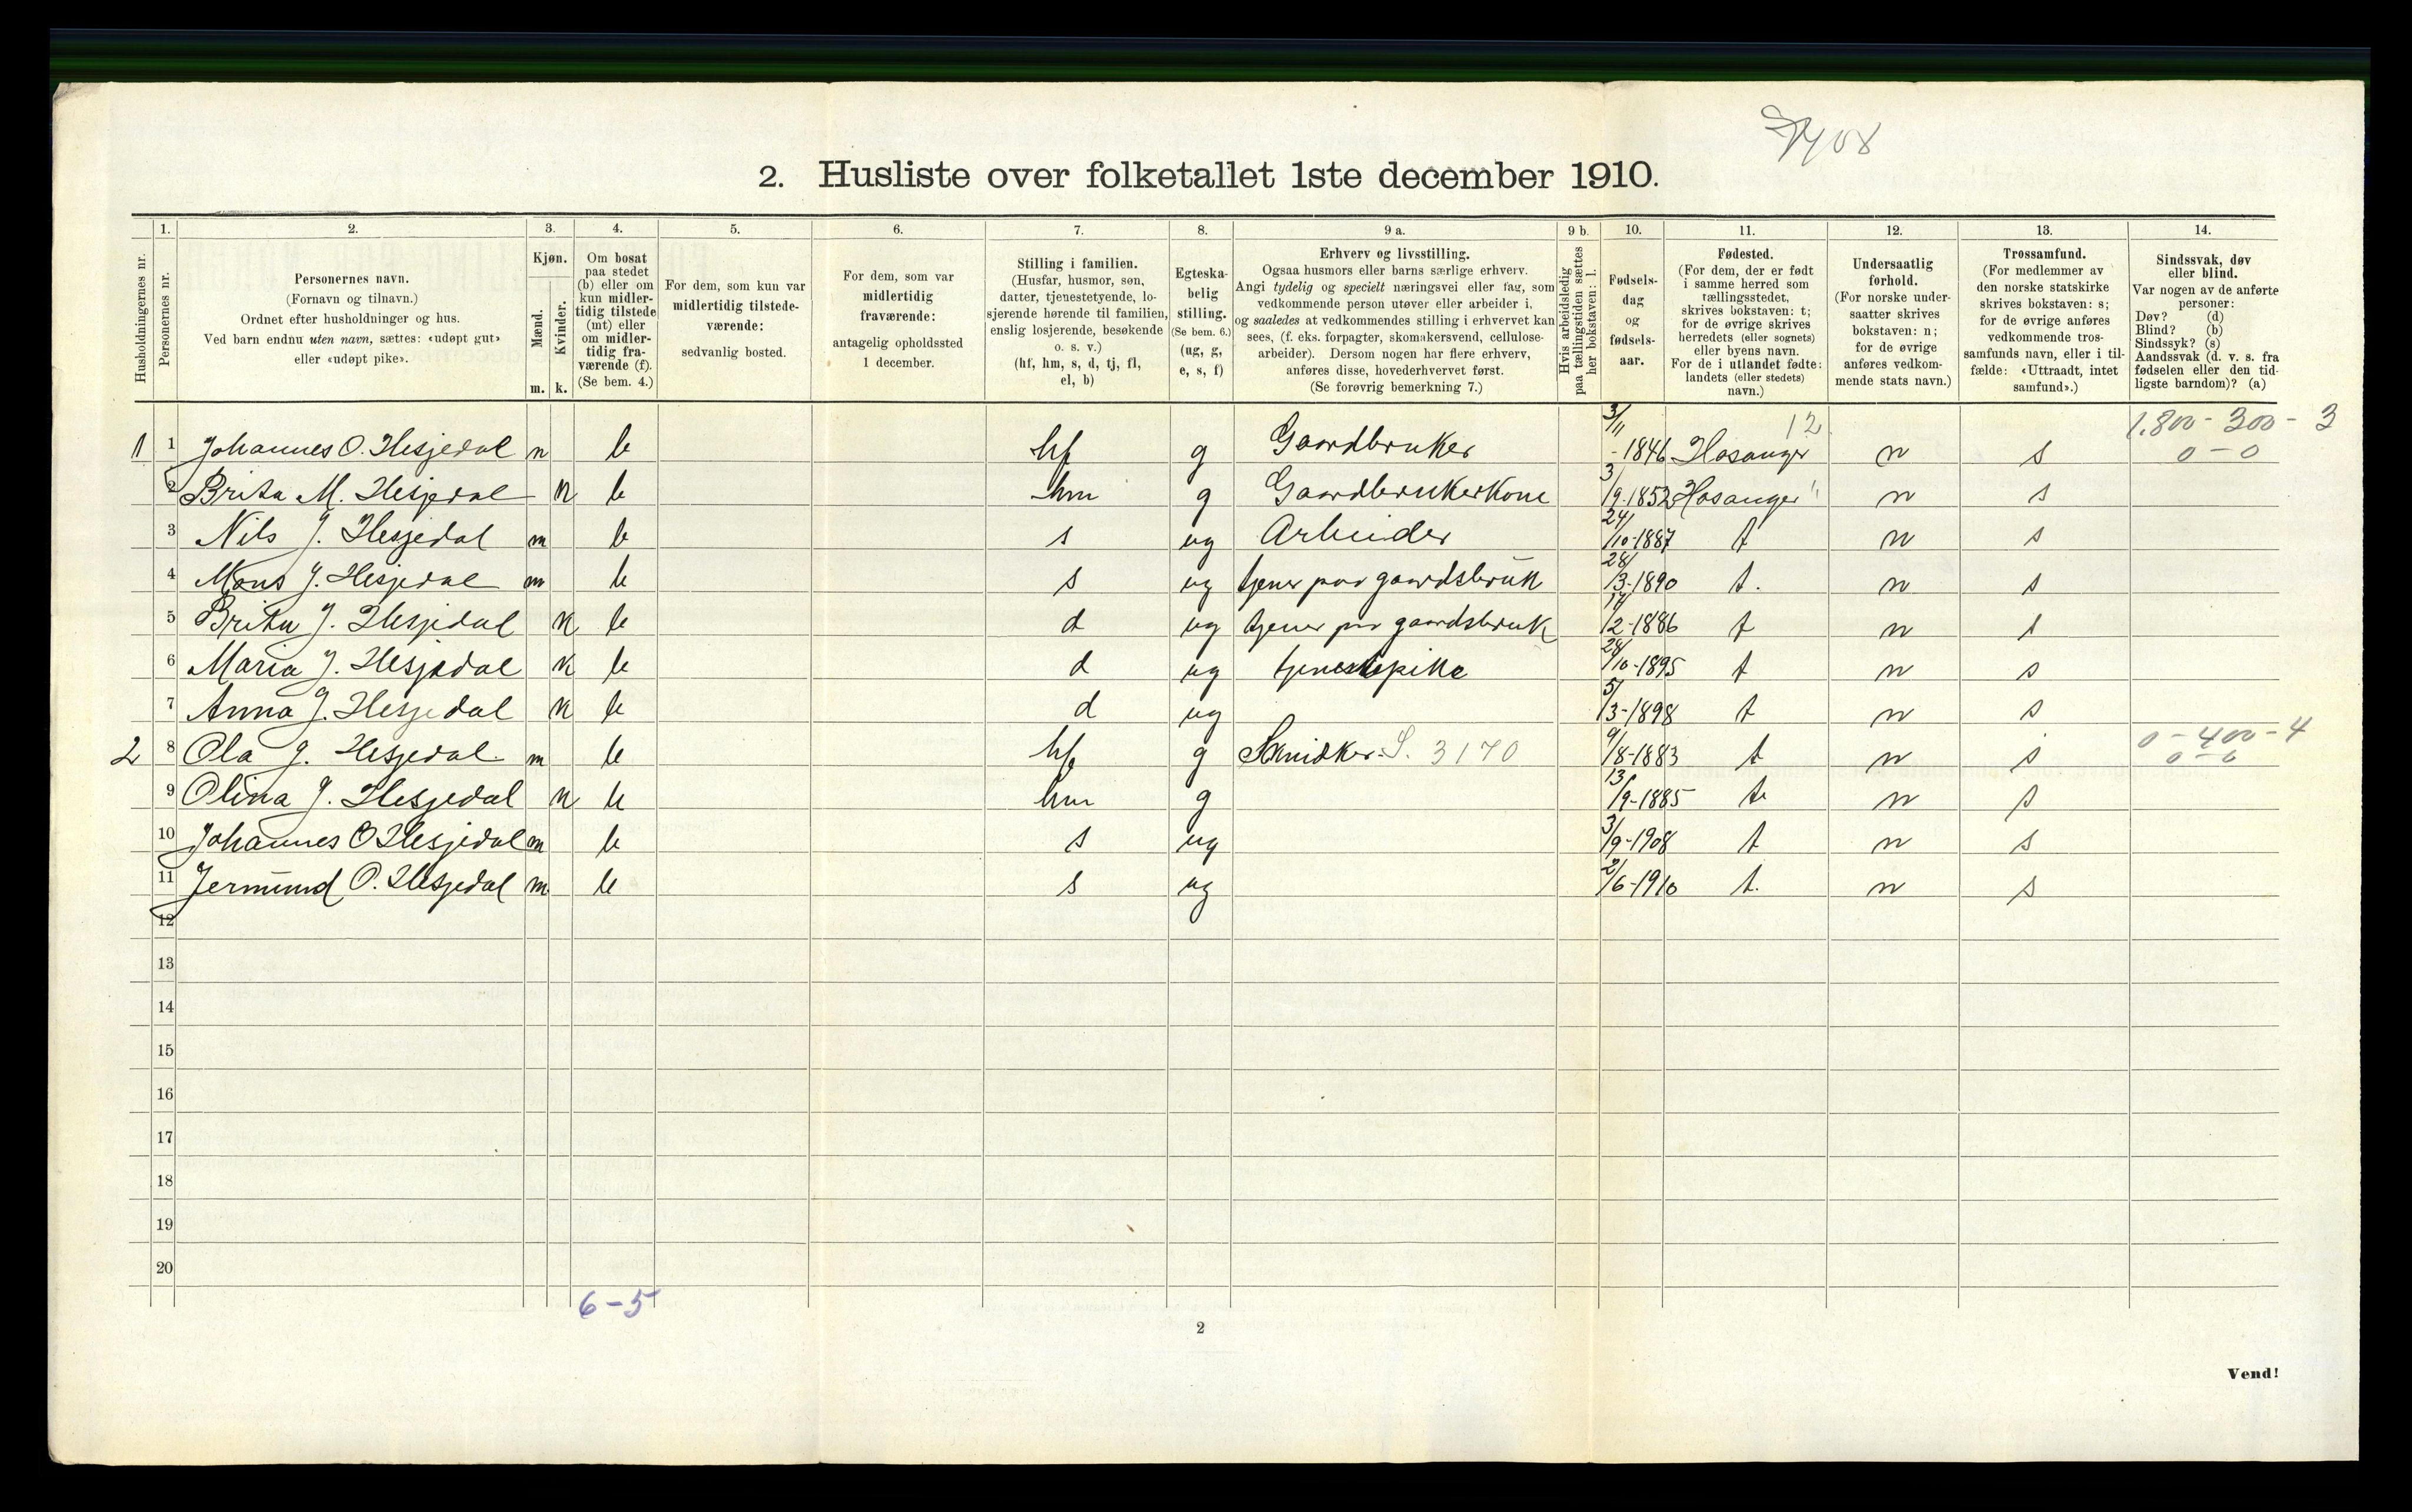 2. Husliste over folketallet 1ste december 1910.
1. 2. 3. 4. 5. 6. 7. 8. 9 a. 9 b. 10. 11. 12. 13. 14.
Husholdningernes nr.
Personernes nr.
Personernes navn.
(Fornavn og tilnavn.)
Ordnet efter husholdninger og hus.
Ved barn endnu uten navn, sættes: «udøpt gut»
eller «udøpt pike».
Kjøn.
Mænd.
m.
Kvinder.
k.
Om bosat
paa stedet
(b) eller om
kun midler-
tidig tilstede
(mt) eller
om midler-
tidig fra-
værende (f).
(Se bem. 4.)
For dem, som kun var
midlertidig tilstede-
værende:
sedvanlig bosted.
For dem, som var
midlertidig
fraværende:
antagelig opholdssted
1 december.
Stilling i familien.
(Husfar, husmor, søn,
datter, tjenestetyende, lo-
sjerende hørende til familien,
enslig losjerende, besøkende
o. s. v.)
(hf, hm, s, d, tj, fl,
el, b)
Egteska-
belig
stilling.
(Se bem. 6.)
(ug, g,
e, s, f)
Erhverv og livsstilling.
Ogsaa husmors eller barns særlige erhverv.
Angi tydelig og specielt næringsvei eller fag, som
vedkommende person utøver eller arbeider i,
og saaledes at vedkommendes stilling i erhvervet kan
sees, (f. eks. forpagter, skomakersvend, cellulose-
arbeider). Dersom nogen har flere erhverv,
anføres disse, hovederhvervet først.
(Se forøvrig bemerkning 7.)
Hvis arbeidsledig
paa tællingstiden sættes
her bokstaven: l.
Fødsels-
dag
og
fødsels-
aar.
Fødested.
(For dem, der er født
i samme herred som
tællingsstedet,
skrives bokstaven: t;
for de øvrige skrives
herredets (eller sognets)
eller byens navn.
For de i utlandet fødte:
landets (eller stedets)
navn.)
Undersaatlig
forhold.
(For norske under-
saatter skrives
bokstaven: n;
for de øvrige
anføres vedkom-
mende stats navn.)
Trossamfund.
(For medlemmer av
den norske statskirke
skrives bokstaven: s;
for de øvrige anføres
vedkommende tros-
samfunds navn, eller i til-
fælde: «Uttraadt, intet
samfund».)
Sindssvak, døv
eller blind.
Var nogen av de anførte
personer:
Døv? (d)
Blind? (b)
Sindssyk? (s)
Aandssvak (d. v. s. fra
fødselen eller den tid-
ligste barndom)? (a)
12 1.800 - 300 - 3
1 1 Johannes O. Hesjedal m b hf g Gaardbruker 3/11 - 1846 Hosanger n s 0 - 0
2 Brita M. Hesjedal k b hm g Gaardbrukerkone 3/9-1852 Hosanger " n s
3 Nils J. Hesjedal m b s ug Arbeider 24/10-1887 t n s
4 Mons J. Hesjedal m b s ug tjener paa gaardsbruk 28/3-1890 t. n s
5 Brita J. Hesjedal k b d ug tjener paa gaardsbruk 14/2-1886 t n s
6 Maria J. Hesjedal k b d ug tjenestepike 28/10-1895 t n s
7 Anna J. Hesjedal k b d ug 5/3-1898 t n s
2 8 Ola J. Hesjedal m b hf g Snidker S. 3170 9/8-1883 t n s 0 - 400 - 4
0 - 0
9 Olina J. Hesjedal k b hm g 13/9-1885 t. n s
10 Johannes O Hesjedal m b s ug 3/9-1908 t n s
11 Jermund O. Hesjedal m b s ug 2/6-1910 t. n s
12
13
14
15
16
17
18
19
20
6-5
2
Vend!